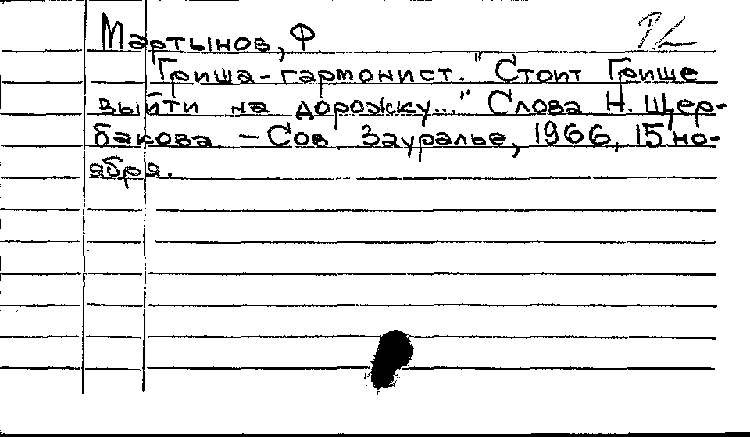 Мартынов, Ф
Гриша-гармонист. "Стоит Грише
выйти на дорожку..." Слова Н. Щер-
бакова. - Сов. Зауралье, 1966, 15 но-
ября.